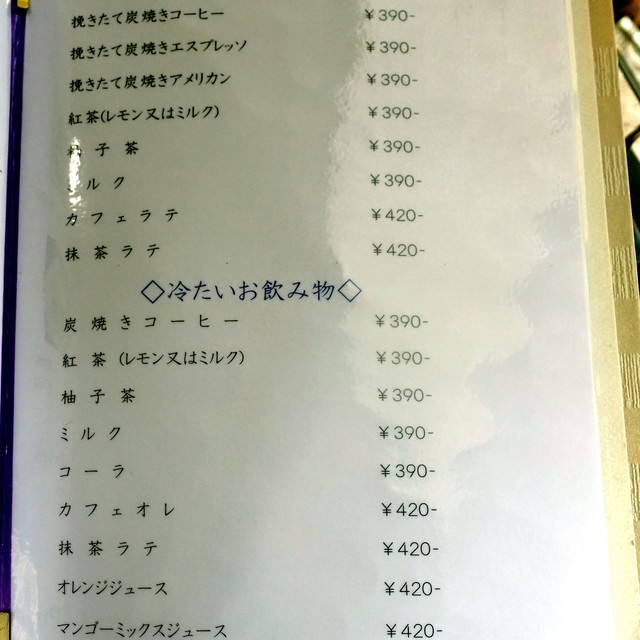 挽きたて炭焼きコーヒー ¥390-
挽きたて炭焼きエスプレッソ ¥390-
挽きたて炭焼きアメリカン ¥390-
紅茶(レモン又はミルク) ¥390-
柚子茶 ¥390-
ミルク ¥390-
カフェラテ ¥420-
抹茶ラテ ¥420-
◇冷たいお飲み物◇
炭焼きコーヒー ¥390-
紅茶(レモン又はミルク) ¥390-
柚子茶 ¥390-
ミルク ¥390-
コーラ ¥390-
カフェオレ ¥420-
抹茶ラテ ¥420-
オレンジジュース ¥420-
マンゴーミックスジュース ¥420-